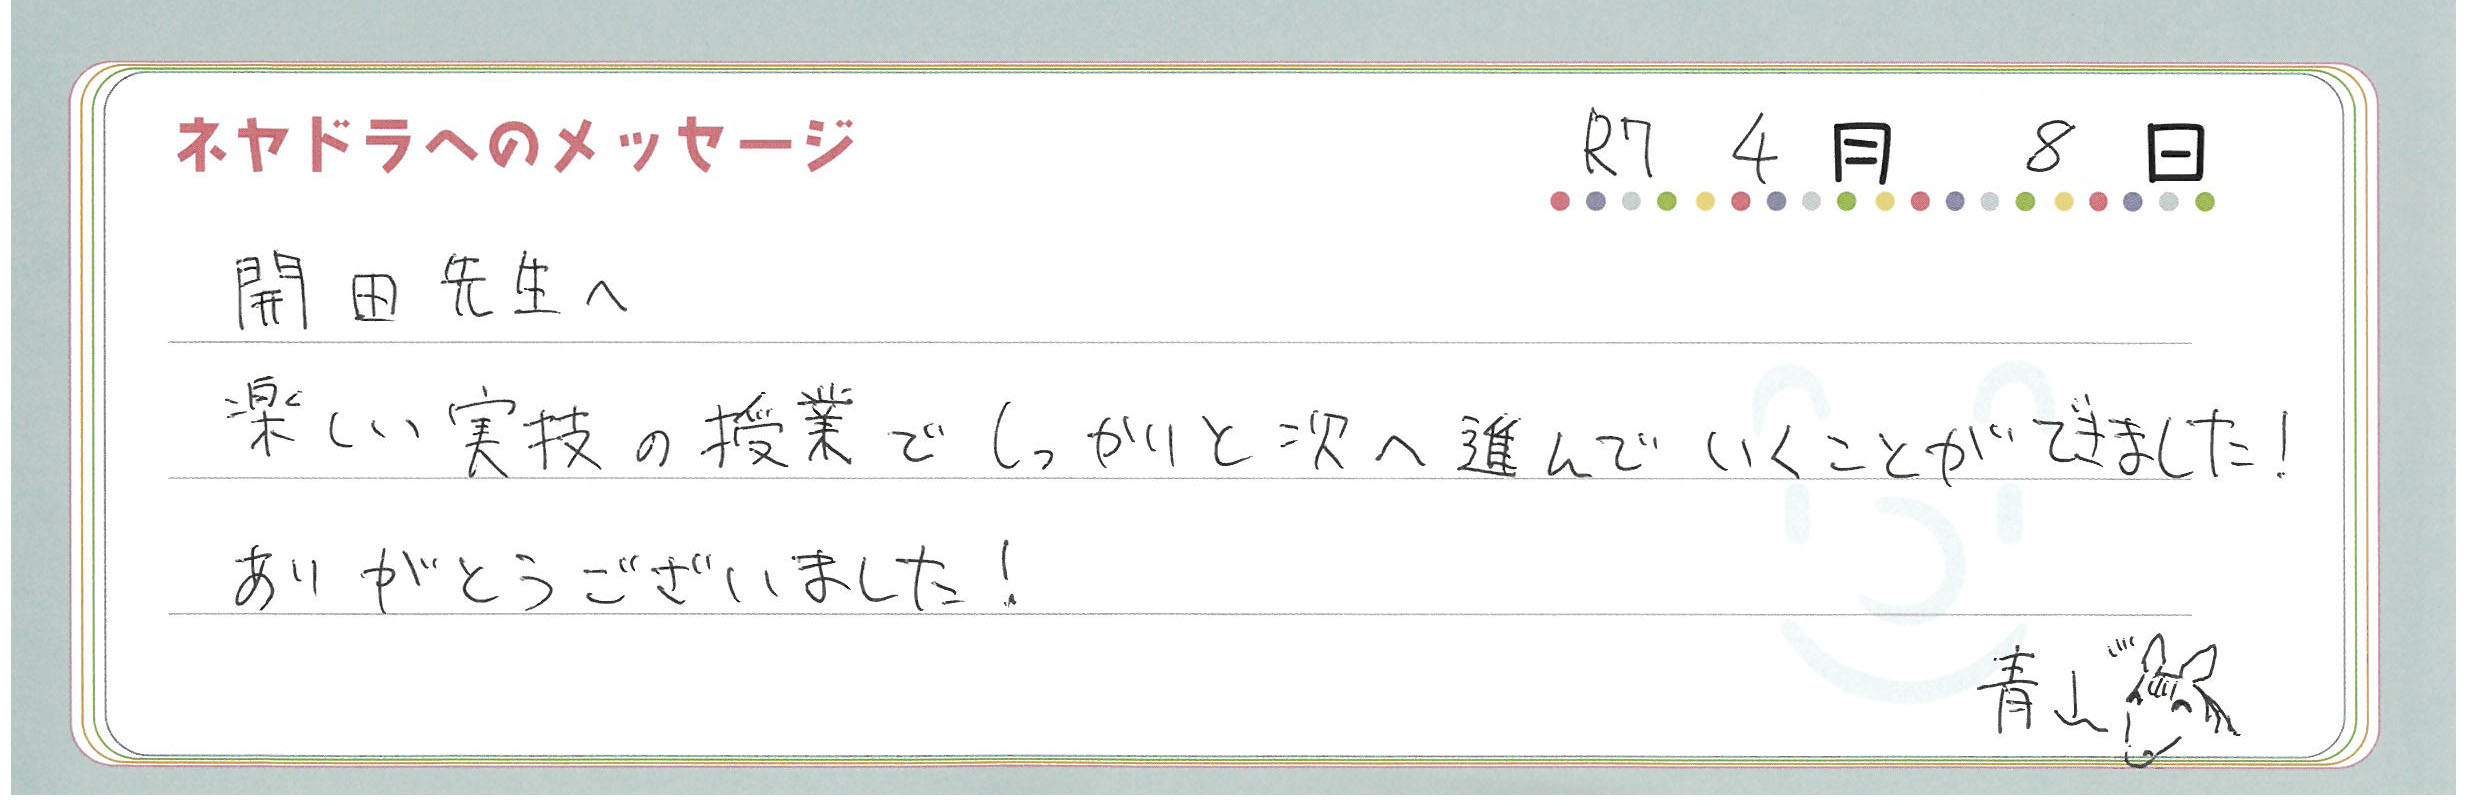 ネヤドラへのメッセージ
R7 4月 8日
開田先生へ
楽しい実技の授業でしっかりと次へ進んでいくことができました!
ありがとうございました!
青山